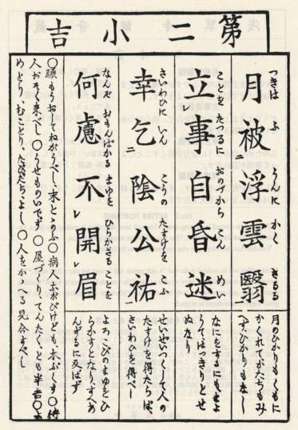 第二小吉
月被浮雲翳
つきは ふうんに かくさるる
月のひかりもくもに
かくれてかたちもみ
へずひかりもなし
立事自昏迷
ことを たつるに おのづから こんめい
なにをするにもまよ
うてはつきりとせ
ぬなり
幸乞陰公祐
さいわひに いん こうの たすけを こふ
せいぜいつくして人の
たすけを得たらば
さいわひを得べし
何慮不開眉
なんぞ おもんばかる まゆを ひらかざる ことを
よろこびのまゆをひ
らかずとなり
んずるに及ばず
○願もうおしてねがうべし、末ととのふ○病人ながびけども、本ぶくす○待
人おそく来べし○うせものいでず○屋づくり、てんたく、とも半吉○よ
めとり、むことり、たびだちよし○人をかかへる見合すべし